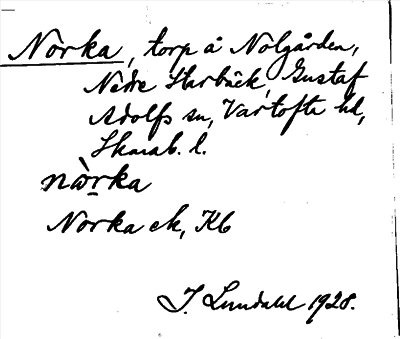 Norka, torp å Nolgården,
Nedre Starbäck, Gustaf
Adolfs sn, Vartofta hd,
Skarab. l.
nàrka
Norka ek, Kb
J. Lundahl 1928.